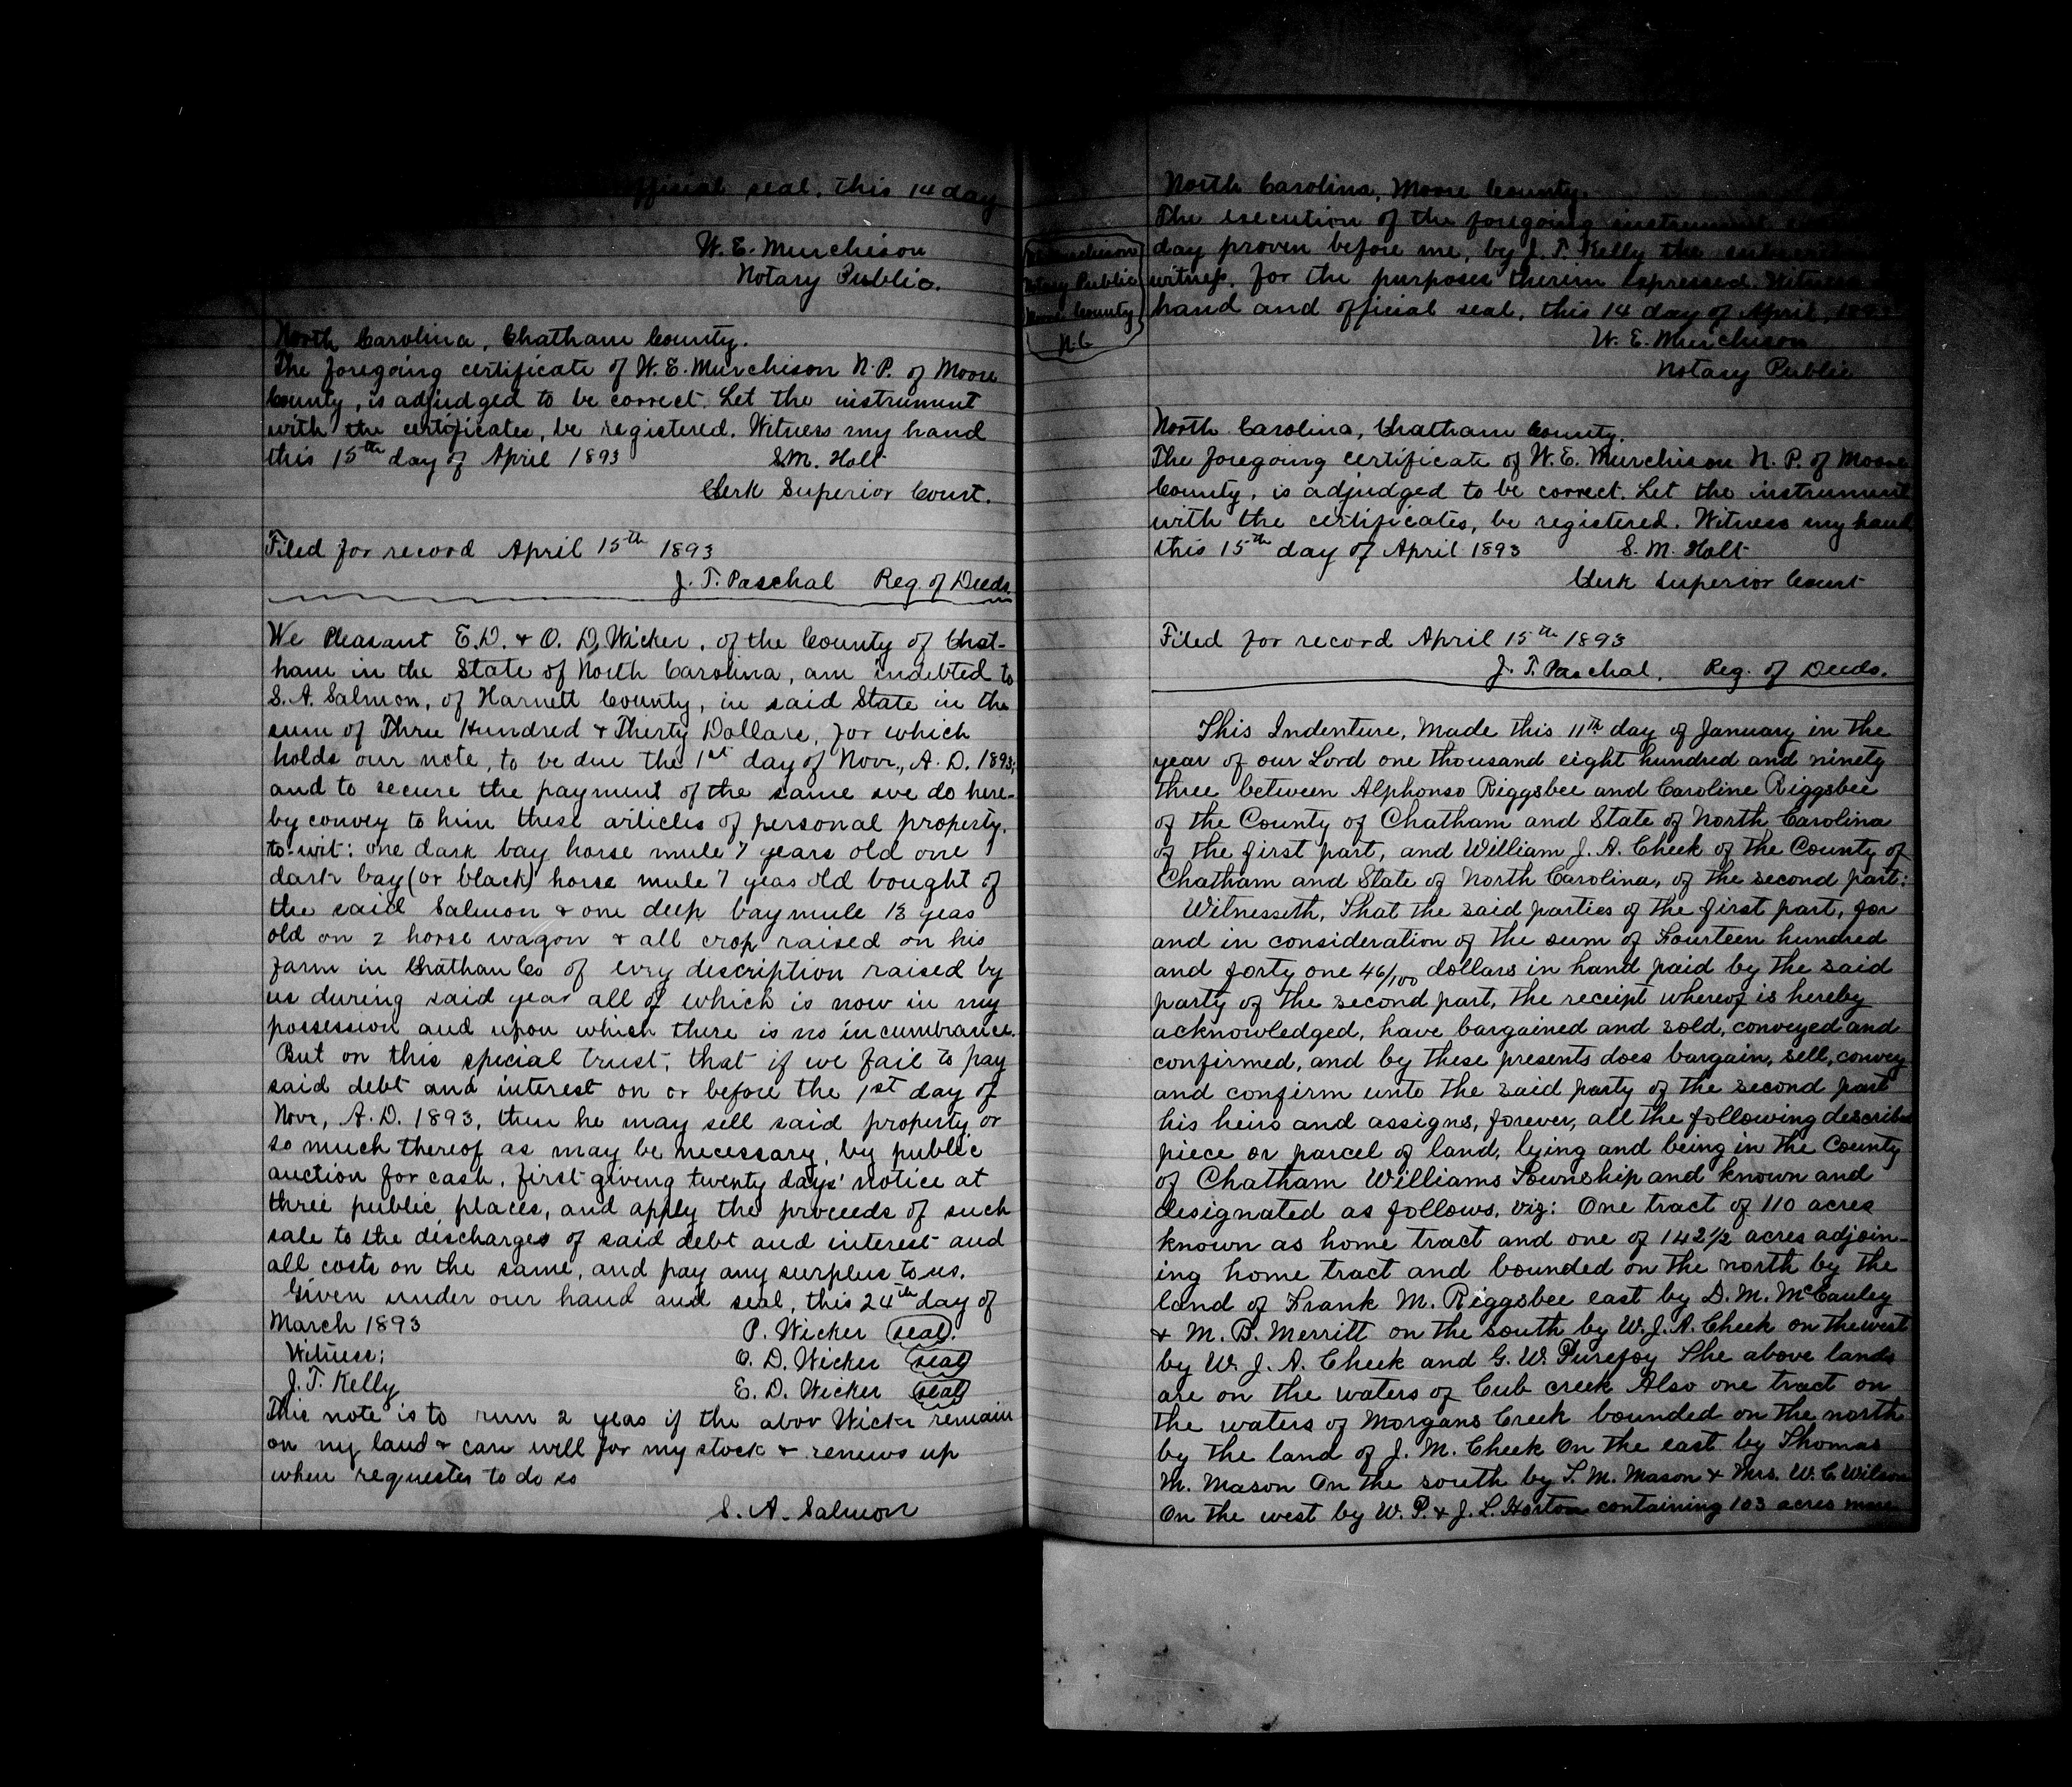 official seal, this 14 day
W. E. Murchison
Notary Public.
North Carolina, Chatham County.
The foregoing certificate of W. E. Murchison N. P. of Moore
County, is adjudged to be correct. Let the instrument
with the certificates, be registered. Witness my hand
this 15th day of April 1893 S. M. Holt
Clerk Superior Court.
Filed for record April 15th 1893
J. T. Paschal Reg. of Deeds.
We Pleasant E. D. & O. D. Wicker, of the County of Chat-
ham in the State of North Carolina, am indebted to
S. A. Salmon, of Harnett County, in said State in the
sum of Three Hundred & Thirty Dollars, for which
holds our note, to be due the 1st day of Novr., A. D. 1893;
and to secure the payment of the same we do here-
by convey to him these articles of personal property,
to-wit: one dark bay horse mule 7 years old one
dark bay (or black) horse mule 7 yeas old bought of
the said Salmon & one deep bay mule 13 yeas
old on 2 horse wagon & all crop raised on his
farm in Chathan Co of evry description raised by
us during said year all of which is now in my
possession and upon which there is no incumbrance.
But on this special trust, that if we fail to pay
said debt and interest on or before the 1st day of
Novr, A. D. 1893, then he may sell said property or
so much thereof as may be necessary, by public
auction for cash, first giving twenty days' notice at
three public places, and apply the proceeds of such
sale to the discharges of said debt and interest and
all costs on the same, and pay any surplus to us.
Given under our hand and seal, this 24th day of
March 1893 P. Wicker (seal).
Witness: O. D. Wicker (seal)
J. T. Kelly E. D. Wicker (seal)
This note is to run 2 yeas if the abov Wickr remain
on my land & care will for my stock & renews up
when requestes to do so
S. A. Salmon
Murchison
Notary Public
Moore County
N.C
North Carolina, Moore County.
The execution of the foregoing instrument
day proven before me, by J. T. Kelly the
witness, for the purposes therein expressed. Witness
hand and official seal, this 14 day of April, 1893
W. E. Murchison
Notary Public
North Carolina, Chatham County.
The foregoing certificate of W. E. Murchison N. P. of Moore
County, is adjudged to be correct. Let the instrument
with the certificates, be registered. Witness my hand
this 15th day of April 1893 S. M. Holt
Clerk Superior Court
Filed for record April 15th 1893
J. T. Paschal, Reg. of Deeds.
This Indenture, Made this 11th day of January in the
year of our Lord one thousand eight hundred and ninety
three between Alphonso Riggsbee and Caroline Riggsbee
of the County of Chatham and State of North Carolina
of the first part, and William J. A. Cheek of the County of
Chatham and State of North Carolina, of the second part:
Witnesseth, That the said parties of the first part, for
and in consideration of the sum of Fourteen hundred
and forty one 46/100 dollars in hand paid by the said
party of the second part, the receipt whereof is hereby
acknowledged, have bargained and sold, conveyed and
confirmed, and by these presents does bargain, sell, convey
and confirm unto the said party of the second part
his heirs and assigns, forever, all the following describe
piece or parcel of land, lying and being in the County
of Chatham Williams Township and known and
designated as follows, viz: One tract of 110 acres
known as home tract and one of 142 1/2 acres adjoin-
ing home tract and bounded on the north by the
land of Frank M. Riggsbee east by D. M. McCauley
& M. B. Merritt on the south by W. J. A. Cheek on the west
by W. J. A. Cheek and G. W. Purefoy The above lands
are on the waters of Cub creek Also one tract on
the waters of Morgans Creek bounded on the north
by the land of J. M. Cheek On the east by Thomas
M. Mason On the south by T. M. Mason & Mrs. W. C. Wilson
On the west by W. P. & J. L. Horton containing 103 acres more